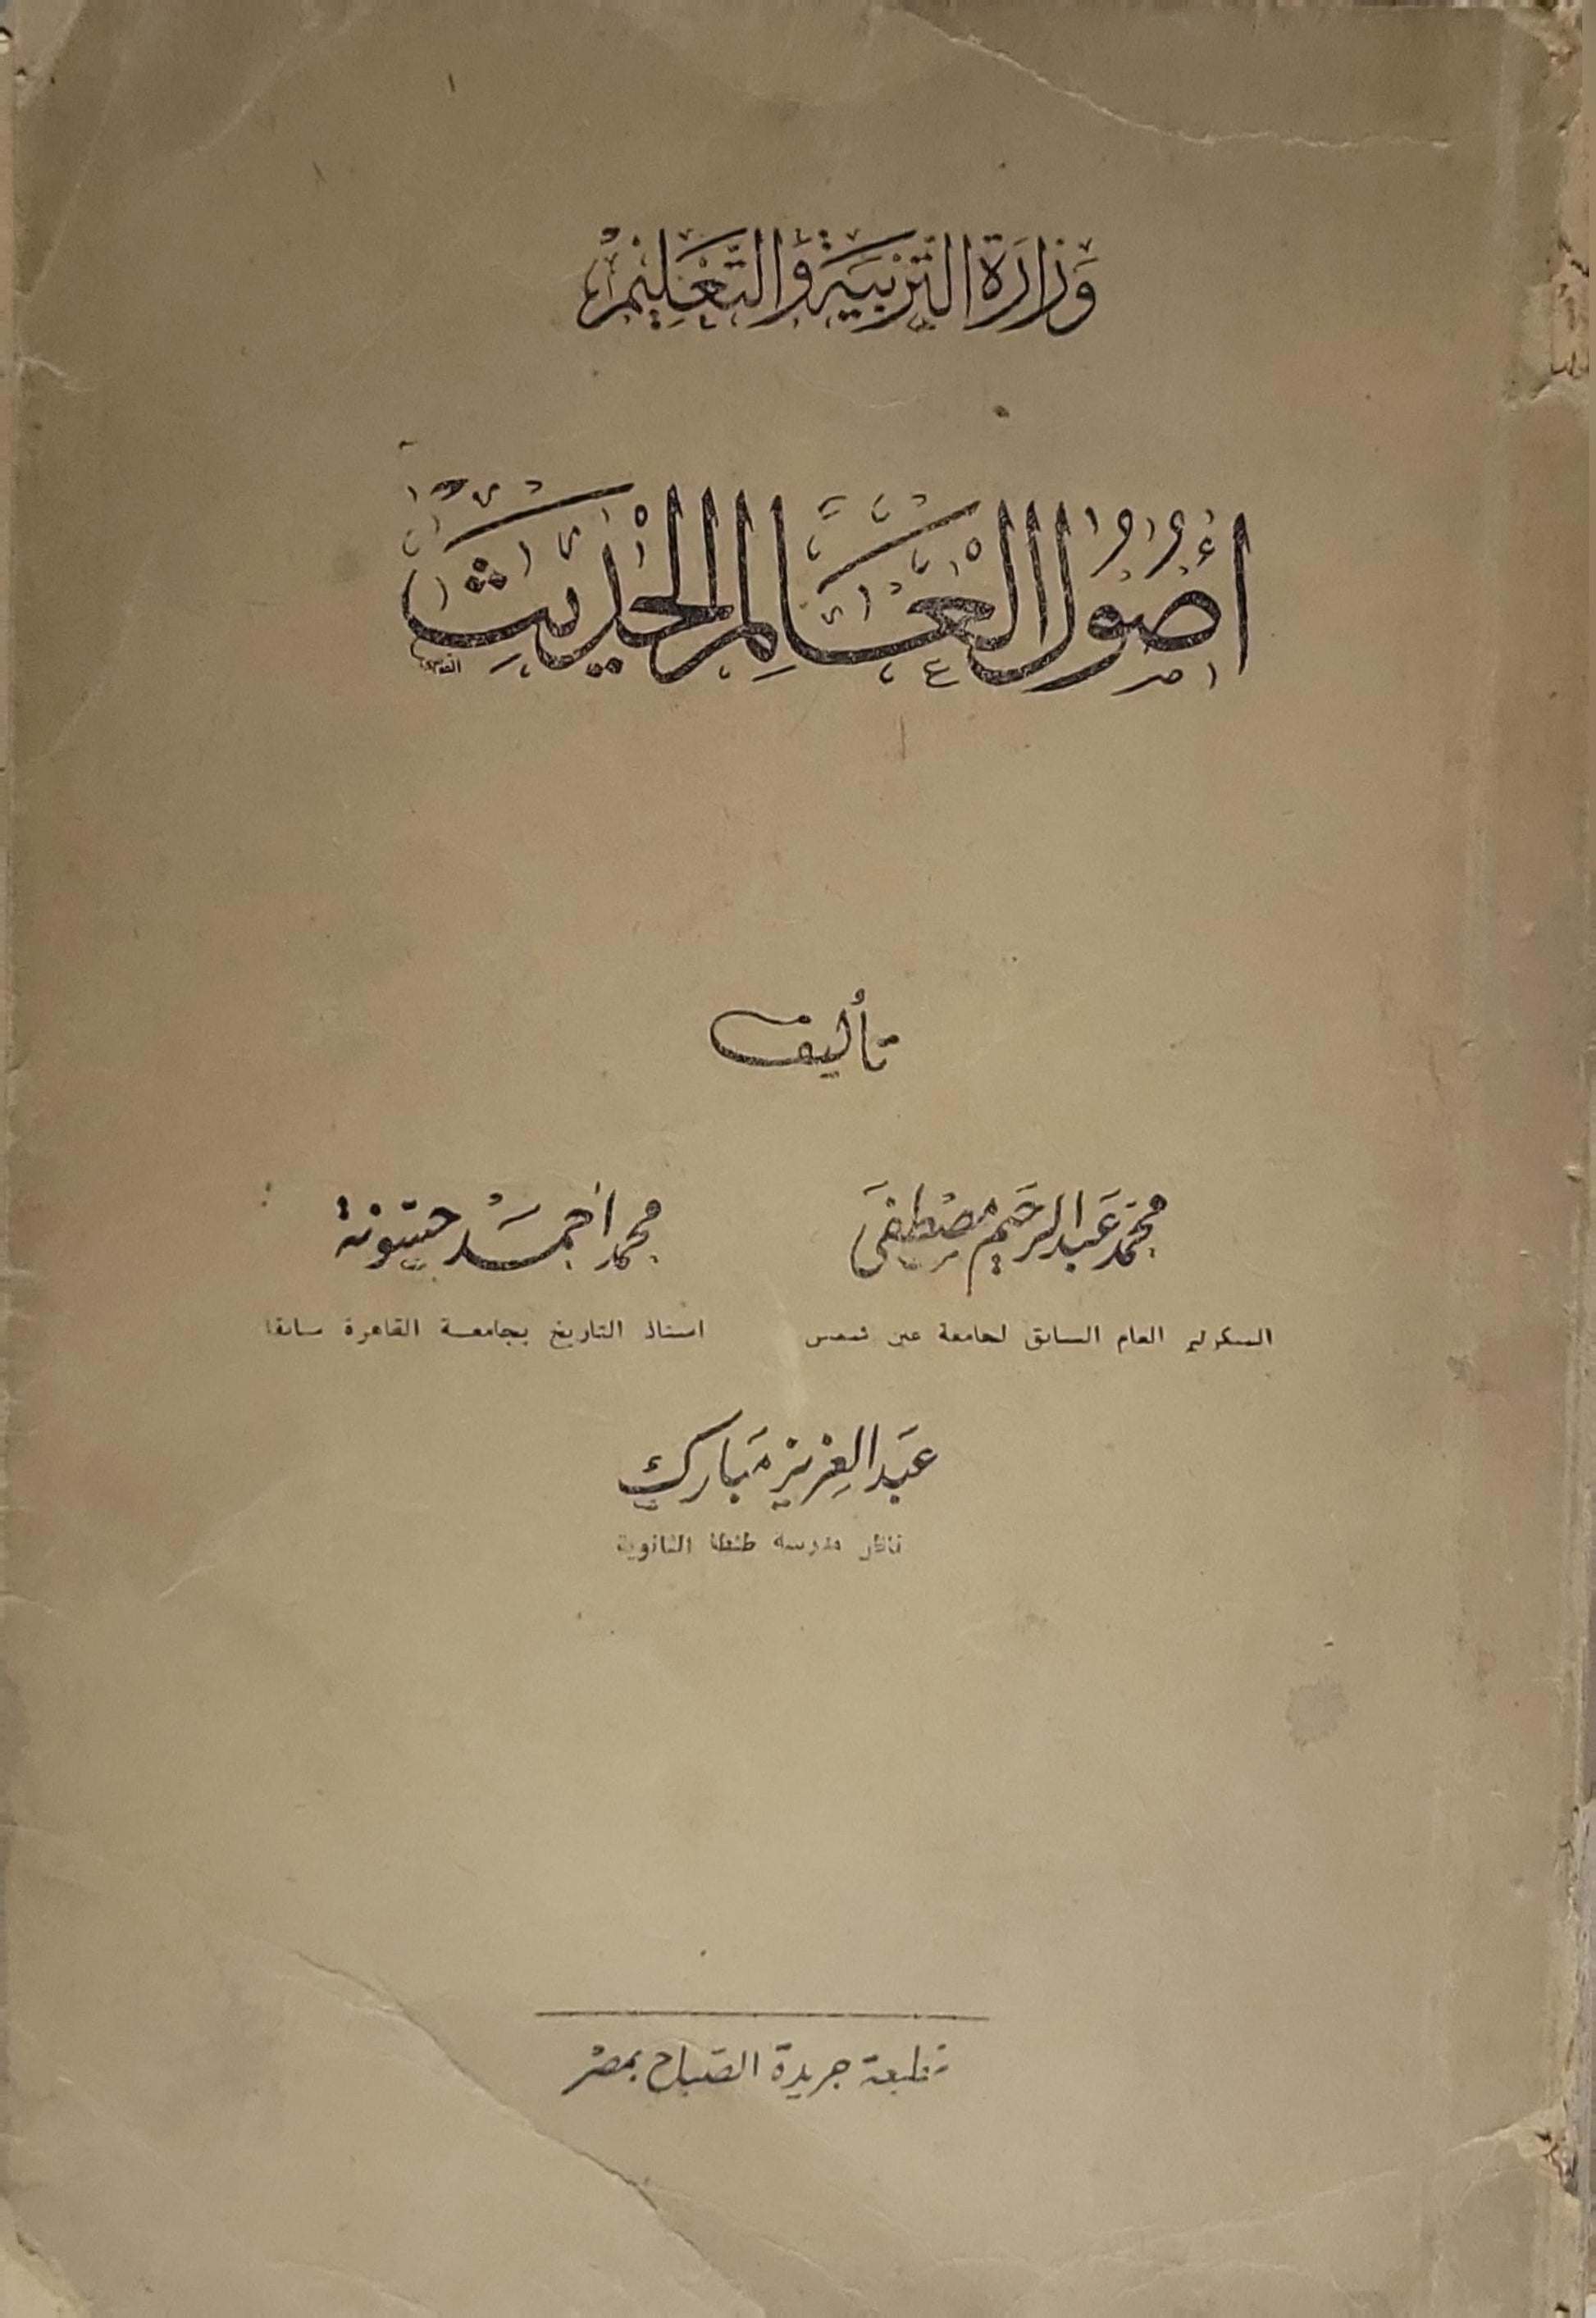 وَزَارَة التَّرْبِيَة وَالتَّعْلِيمْ
أُصُولُ الْعَالَمِ الْحَدِيثِ
تأليف
محمّد عَبد الرحَيم مصْطفَى
محمد أحمَد حسّونة
السكرتير العام السابق لجامعة عين شمس
استاذ التاريخ بجامعة القاهرة سابقا
عَبد العزيز مبَارك
ناظر مدرسة طنطا الثانوية
مطبعة جريدة الصّباح بمصْر